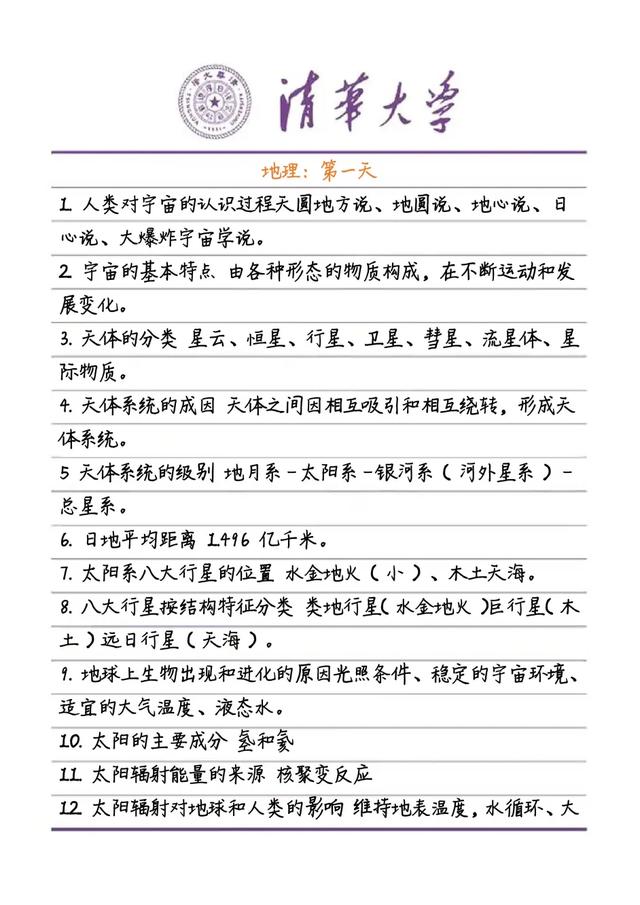 清华大学
地理：第一天
1. 人类对宇宙的认识过程天圆地方说、地圆说、地心说、日
心说、大爆炸宇宙学说。
2. 宇宙的基本特点 由各种形态的物质构成，在不断运动和发
展变化。
3. 天体的分类 星云、恒星、行星、卫星、彗星、流星体、星
际物质。
4. 天体系统的成因 天体之间因相互吸引和相互绕转，形成天
体系统。
5 天体系统的级别 地月系-太阳系-银河系（河外星系）-
总星系。
6. 日地平均距离 1.496 亿千米。
7. 太阳系八大行星的位置 水金地火（小）、木土天海。
8. 八大行星按结构特征分类 类地行星（水金地火）巨行星（木
土）远日行星（天海）。
9. 地球上生物出现和进化的原因光照条件、稳定的宇宙环境、
适宜的大气温度、液态水。
10. 太阳的主要成分 氢和氦
11. 太阳辐射能量的来源 核聚变反应
12. 太阳辐射对地球和人类的影响 维持地表温度，水循环、大